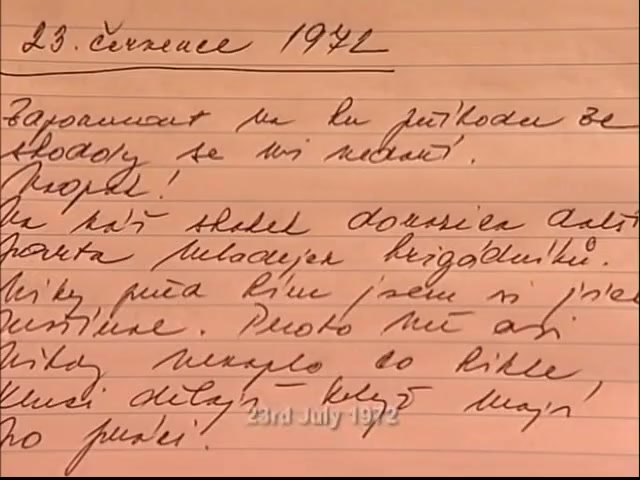 23. července 1972
Zapomnout na tu příhodu ze
stodoly se mi nedaří.
Naopak!
Na náš statek dorazila další
parta mladejch brigádníků.
Nikdy před tím jsem si jich
nevšímal. Proto mě asi
nikdy co tihle
kluci dělají když mají
po práci.
23rd July 1972